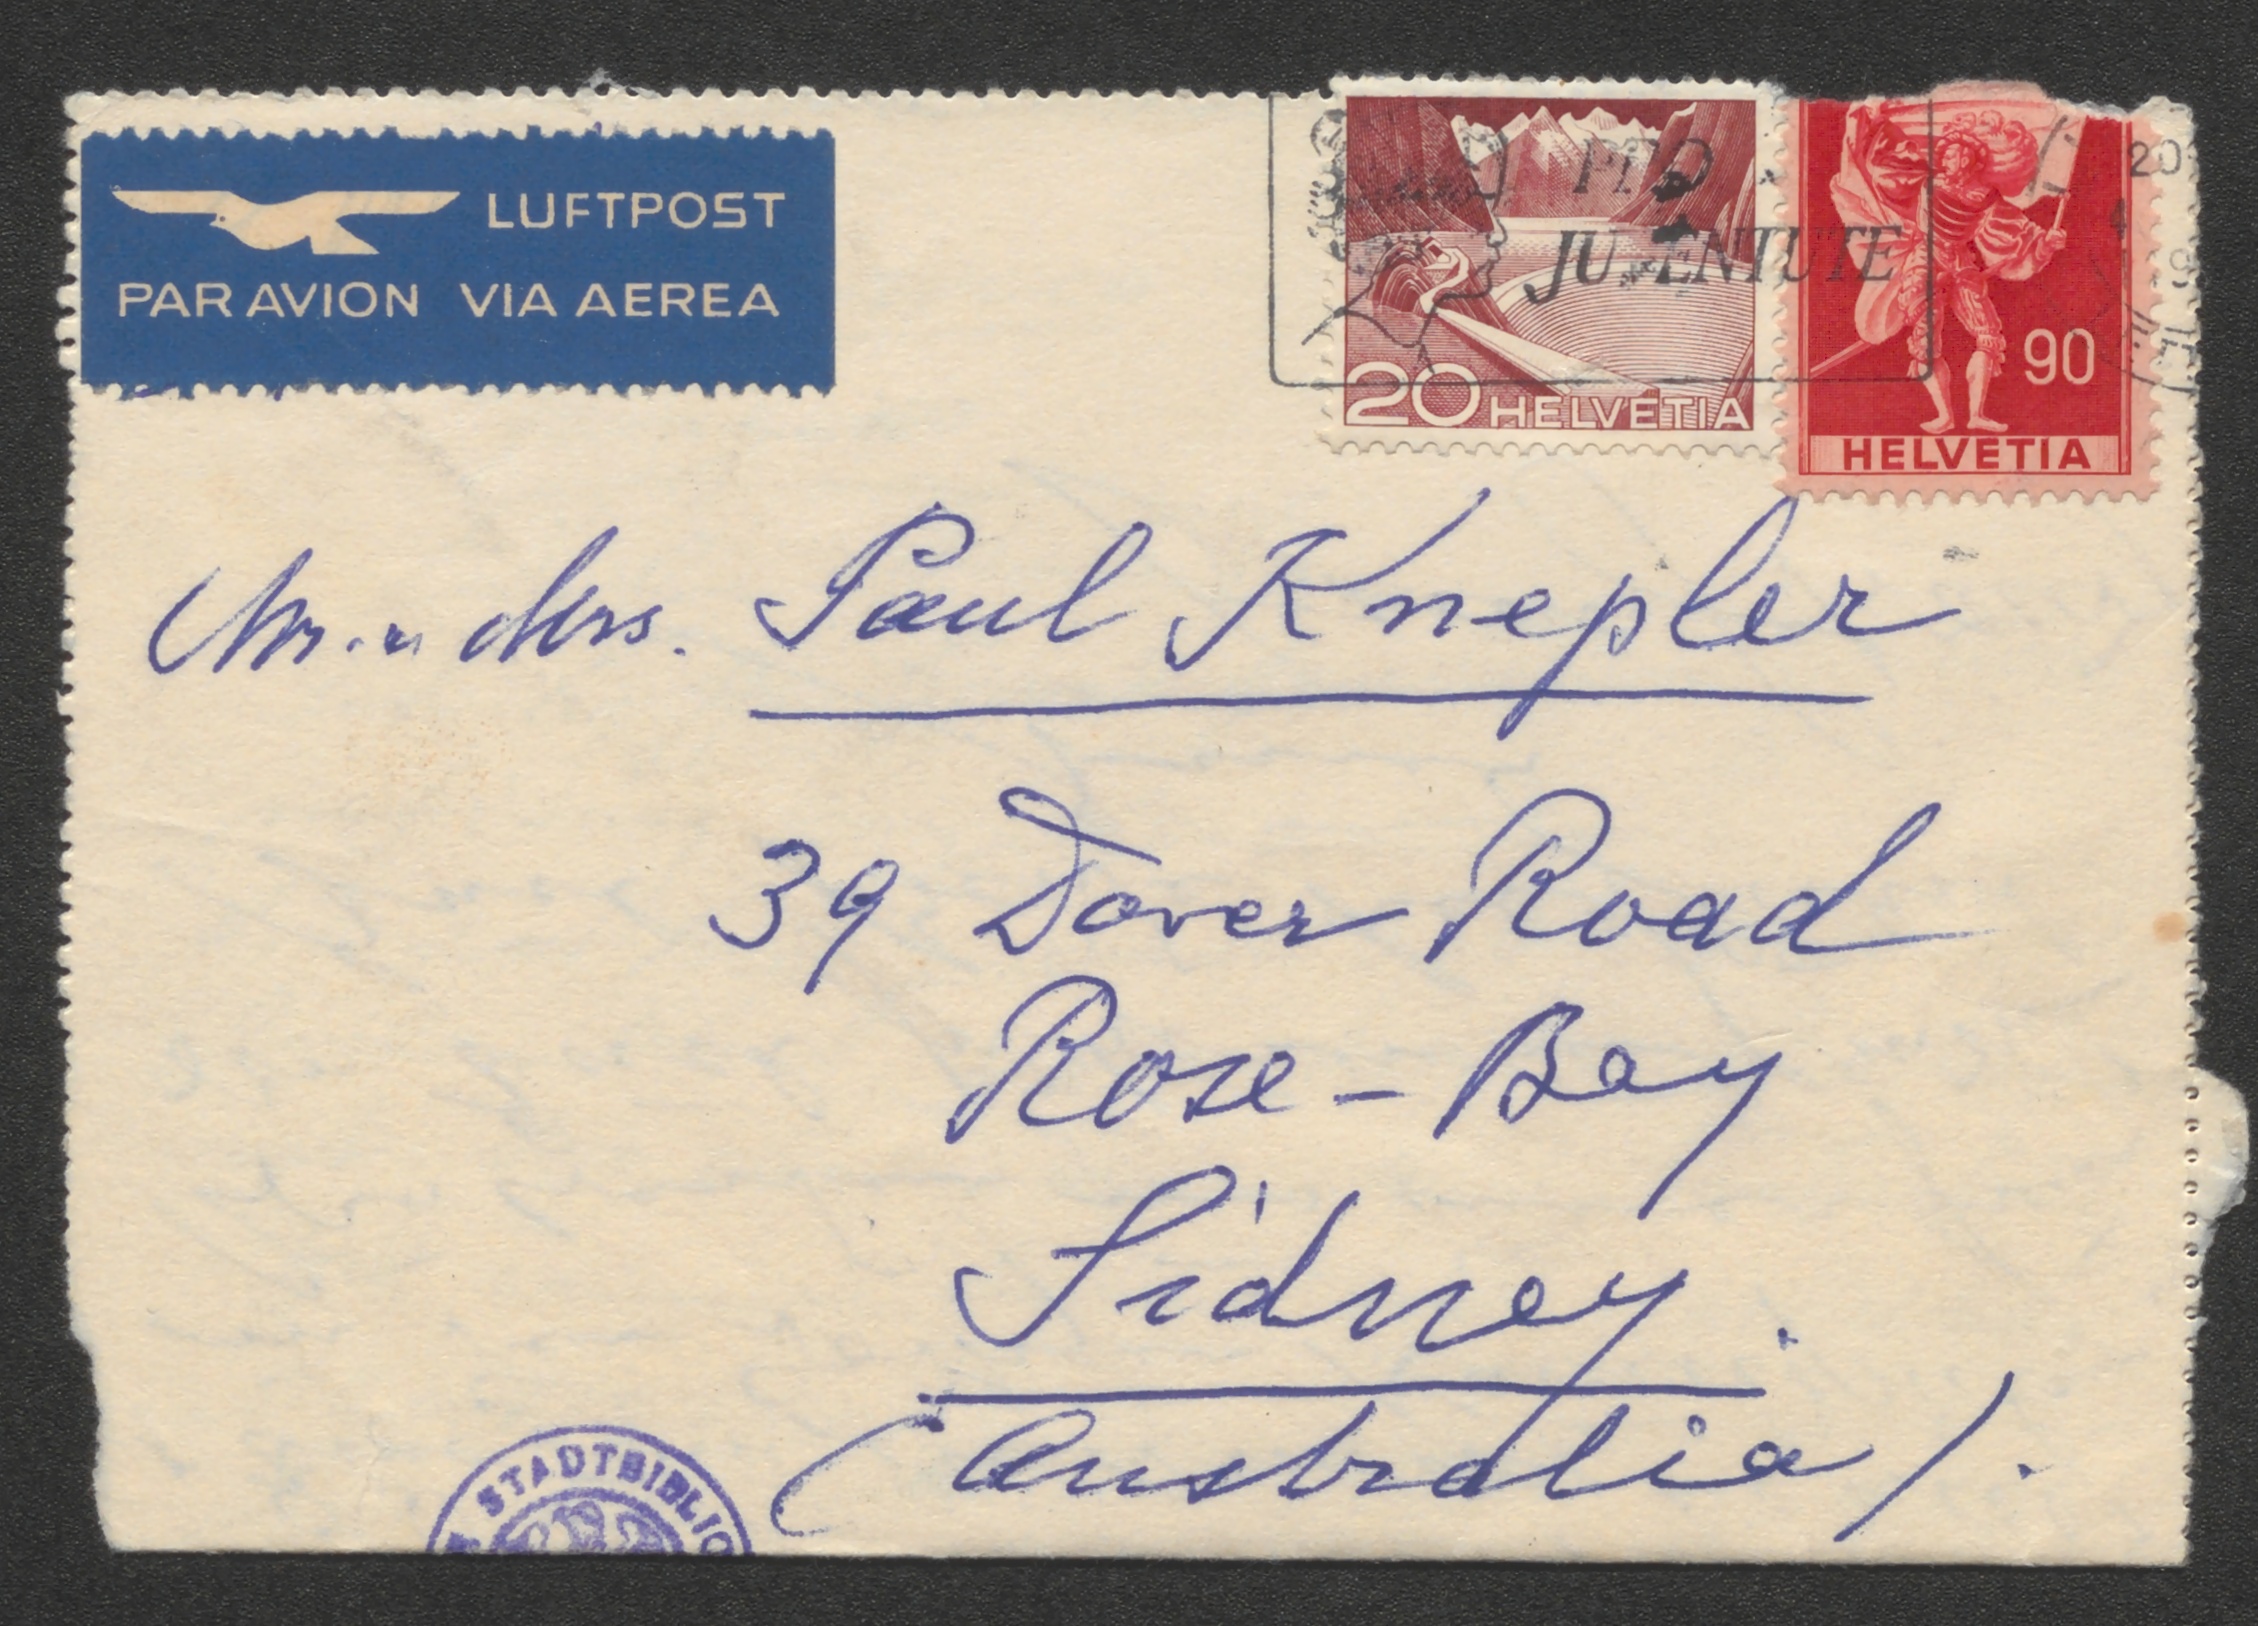 LUFTPOST
PAR AVION VIA AEREA
PRO
JUVENTUTE
20 HELVETIA
90
HELVETIA
20
Mr. u Mrs. Paul Knepler
39 Dover Road
Rose-Bay
Sidney.
(Australia).
STADTBIBLIO